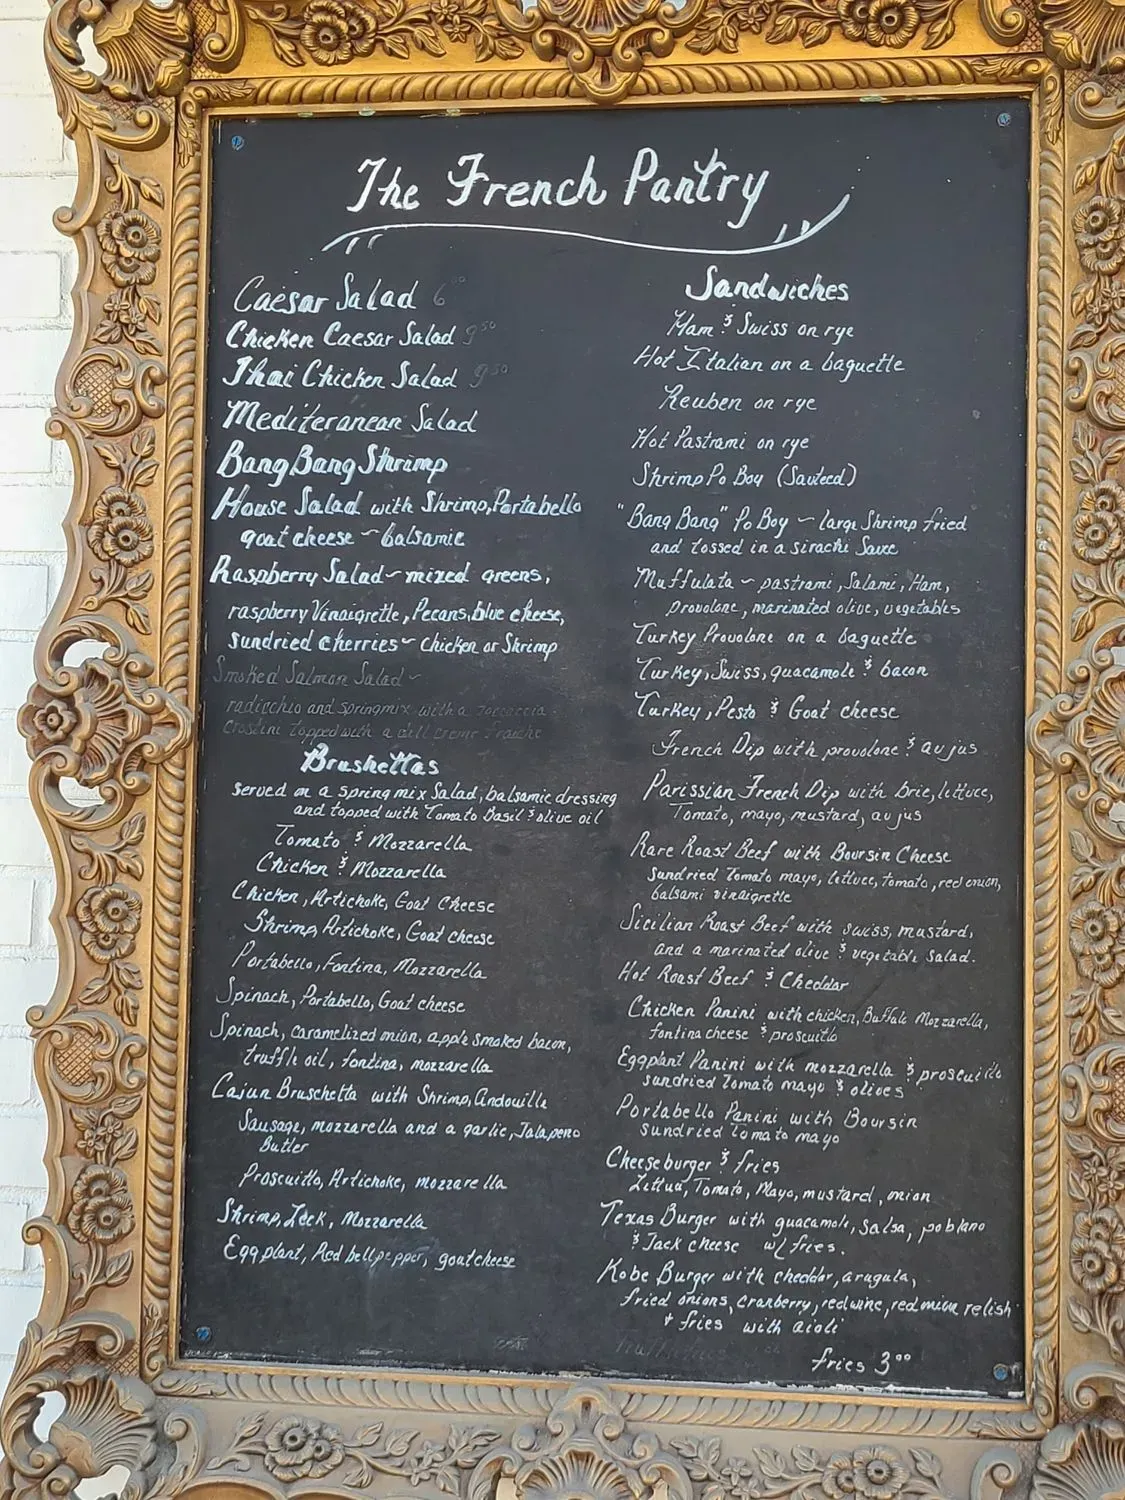 The French Pantry
Caesar Salad 6⁰⁰
Chicken Caesar Salad 9⁵⁰
Thai Chicken Salad 9⁵⁰
Mediteranean Salad
Bang Bang Shrimp
House Salad with Shrimp, Portabello
goat cheese ~ balsamic
Raspberry Salad ~ mixed greens,
raspberry Vinaigrette, Pecans, blue cheese,
sundried cherries ~ chicken or Shrimp
Smoked Salmon Salad ~
radicchio and springmix with a foccaccia
crostini topped with a dill creme fraiche
Brushettas
served on a spring mix Salad, balsamic dressing
and topped with Tomato Basil & olive oil
Tomato & Mozzarella
Chicken & Mozzarella
Chicken, Artichoke, Goat Cheese
Shrimp, Artichoke, Goat cheese
Portabello, Fontina, Mozzarella
Spinach, Portabello, Goat cheese
Spinach, caramelized onion, apple smoked bacon,
truffle oil, fontina, mozzarella
Cajun Bruschetta with Shrimp, Andouille
Sausage, mozzarella and a garlic, Jalapeno
Butter
Proscuitto, Artichoke, mozzarella
Shrimp, Leek, Mozzarella
Eggplant, Red bell pepper, goat cheese
Sandwiches
Ham & Swiss on rye
Hot Italian on a baguette
Reuben on rye
Hot Pastrami on rye
Shrimp Po Boy (Sauteed)
"Bang Bang" Po Boy ~ large Shrimp fried
and tossed in a sirachi Sauce
Muffulata ~ pastrami, Salami, Ham,
provolone, marinated olive, vegetables
Turkey Provolone on a baguette
Turkey, Swiss, guacamole & bacon
Turkey, Pesto & Goat cheese
French Dip with provolone & au jus
Parissian French Dip with brie, lettuce,
Tomato, mayo, mustard, au jus
Rare Roast Beef with Boursin Cheese
sundried Tomato mayo, lettuce, tomato, red onion,
balsami vinaigrette
Sicilian Roast Beef with swiss, mustard,
and a marinated olive & vegetable salad.
Hot Roast Beef & Cheddar
Chicken Panini with chicken, Buffalo Mozzarella,
fontina cheese & proscuitto
Eggplant Panini with mozzarella & proscuitto
sundried Tomato mayo & olives
Portabello Panini with Boursin
sundried tomato mayo
Cheeseburger & fries
Lettuce, Tomato, Mayo, mustard, onion
Texas Burger with guacamole, Salsa, poblano
& Jack cheese w/ fries.
Kobe Burger with cheddar, arugula,
fried onions, cranberry, red wine, red onion relish
+ fries with aioli
fries 3⁰⁰